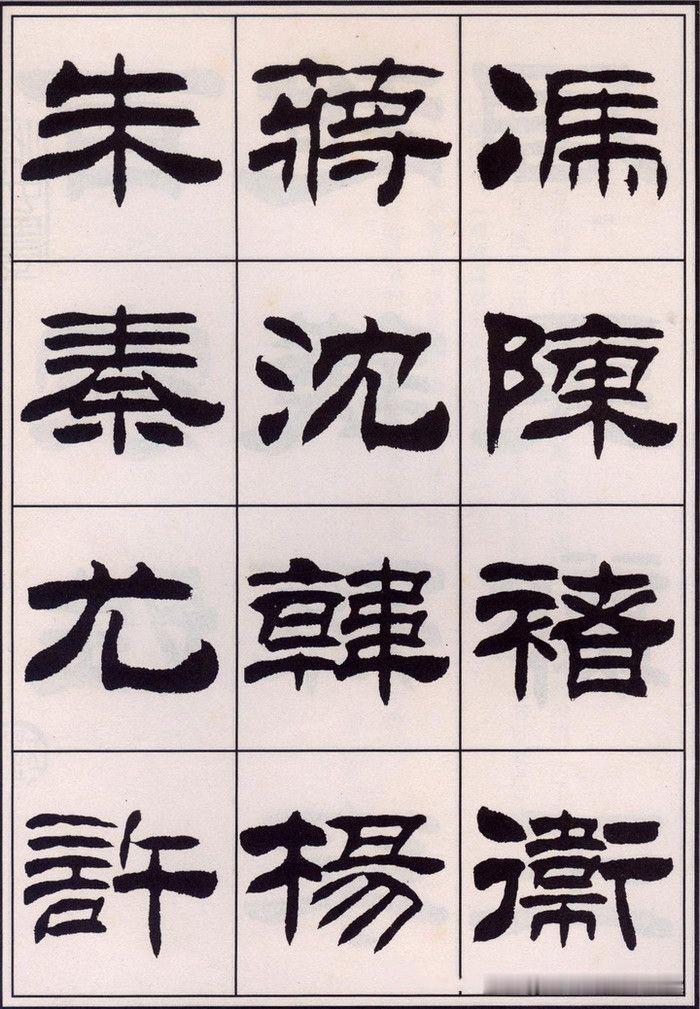 馮陳褚衛
蔣沈韓楊
朱秦尤許